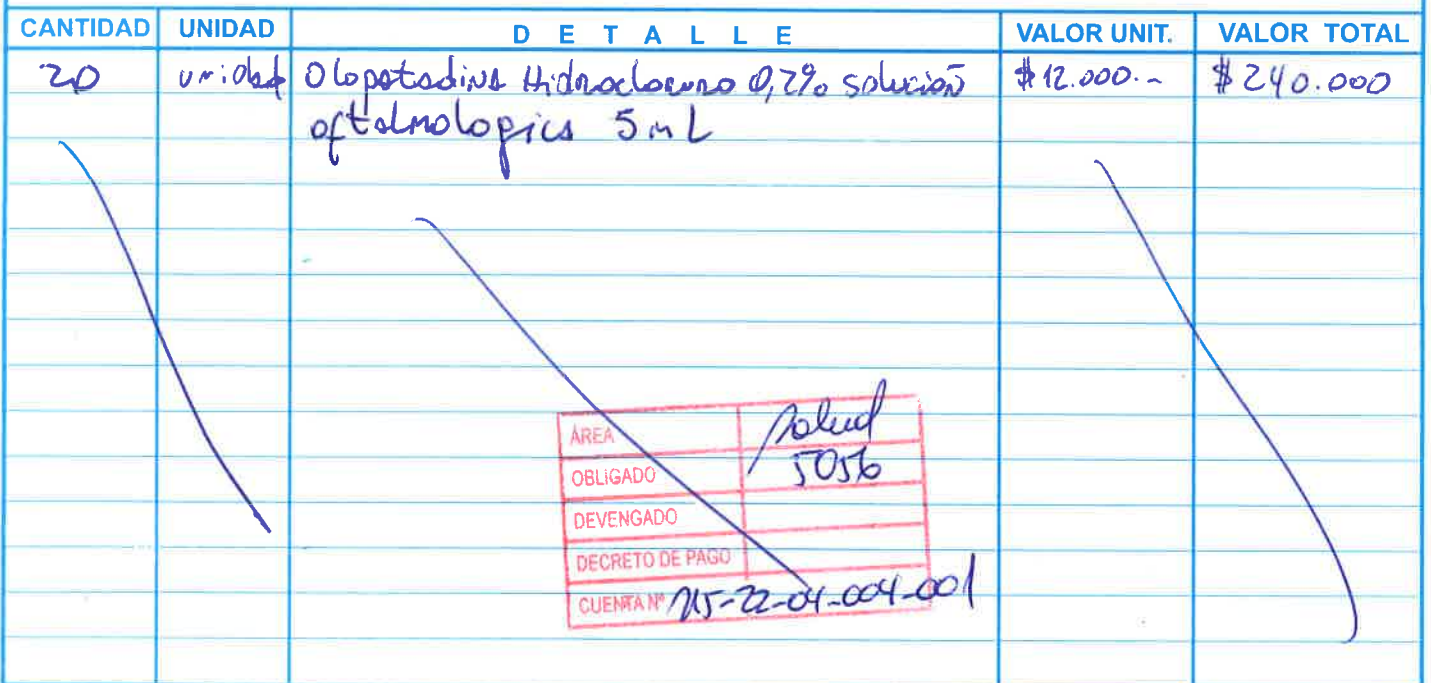 CANTIDAD UNIDAD DETALLE VALOR UNIT. VALOR TOTAL
20 unidad Olopatadina Hidrocloruro 0,2% solución $12.000.- $240.000
oftalmologica 5mL
ÁREA Salud
OBLIGADO 5056
DEVENGADO
DECRETO DE PAGO
CUENTA Nº 215-22-04-004-001